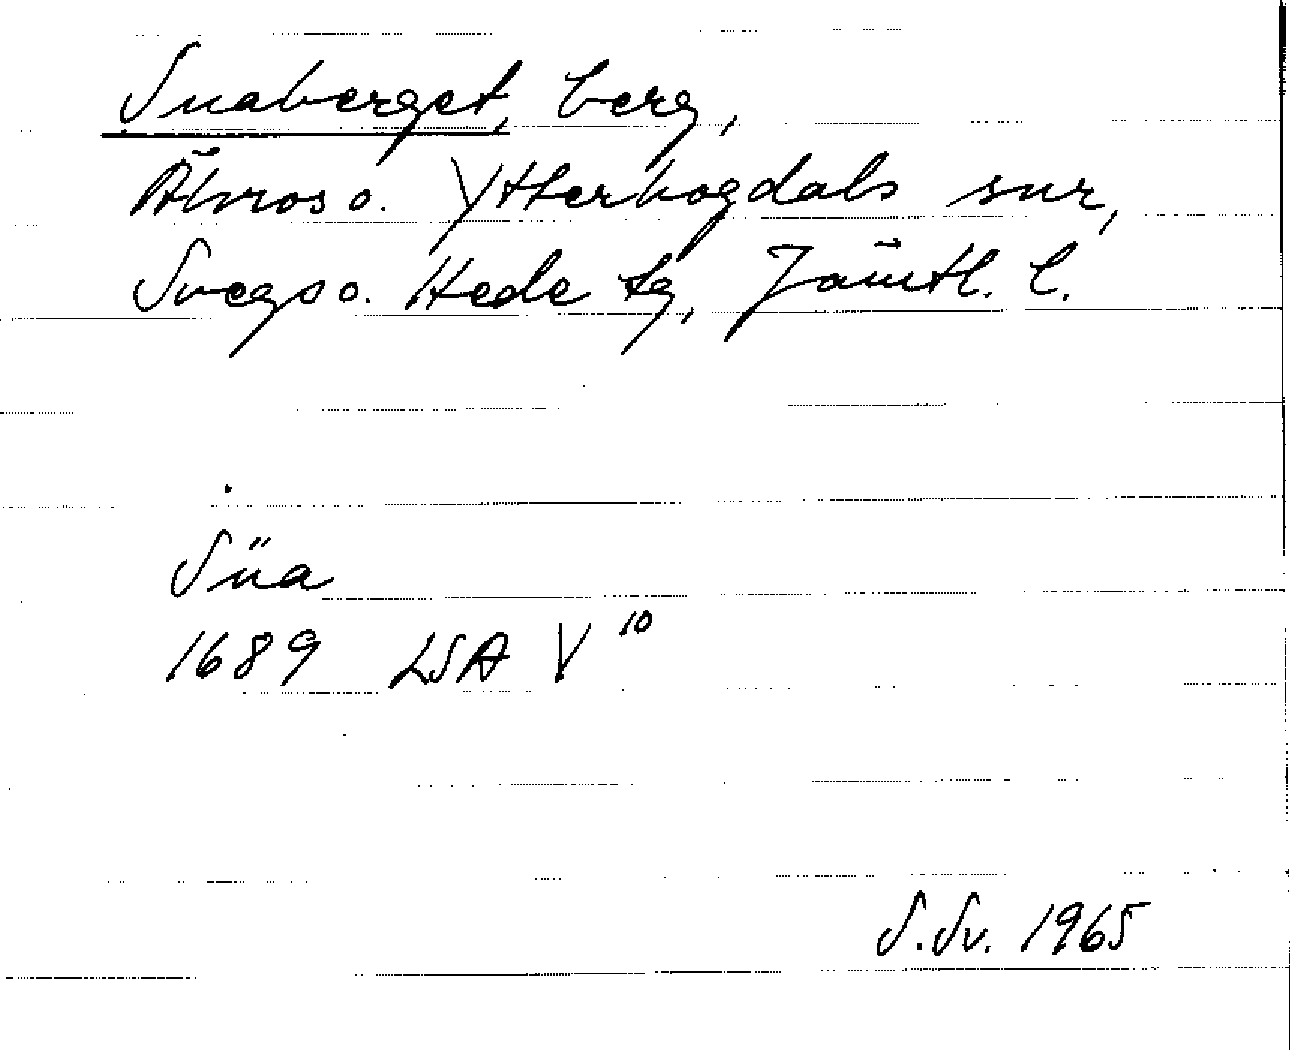 Snaberget, berg,
Älvros o. Ytterhogdals snr,
Svegs o. Hede tg, Jämtl. l.
Süa
1689 LSA V¹⁰
S.Sv. 1965